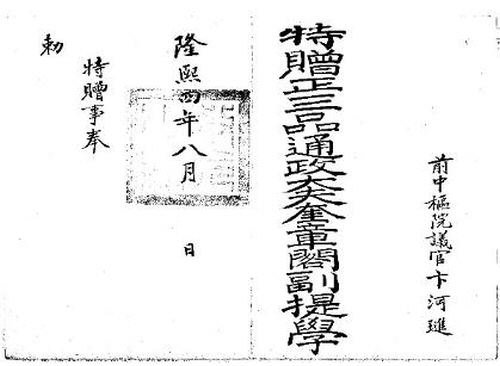 前中樞院議官卞河璡
特贈正三品通政大夫奎章閣副提學
隆熙四年八月　日
特贈事奉
勅